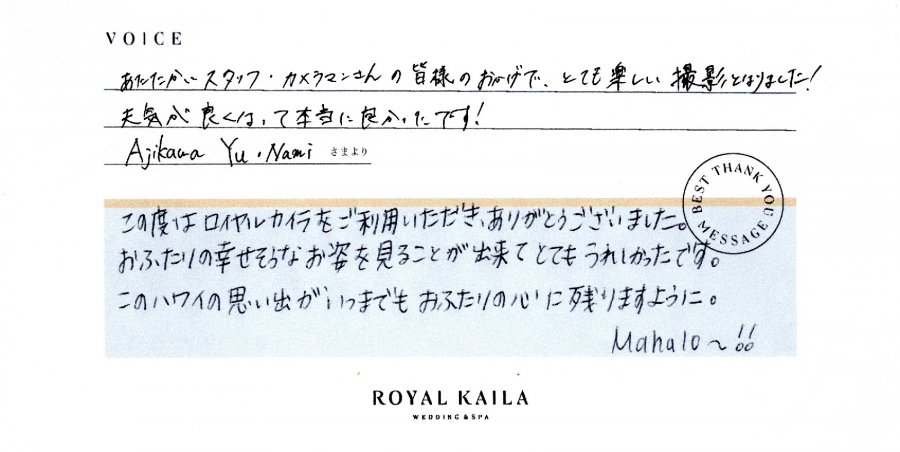 VOICE
あたたかいスタッフ・カメラマンさんの皆様のおかげで、とても楽しい撮影となりました!
天気が良くなって本当に良かったです!
Ajikawa Yu・Nami さまより
BEST THANK YOU MESSAGE
この度はロイヤルカイラをご利用いただき、ありがとうございました。
おふたりの幸せそうなお姿を見ることが出来てとてもうれしかったです。
このハワイの思い出がいつまでもおふたりの心に残りますように。
Mahalo〜!!
ROYAL KAILA
WEDDING & SPA